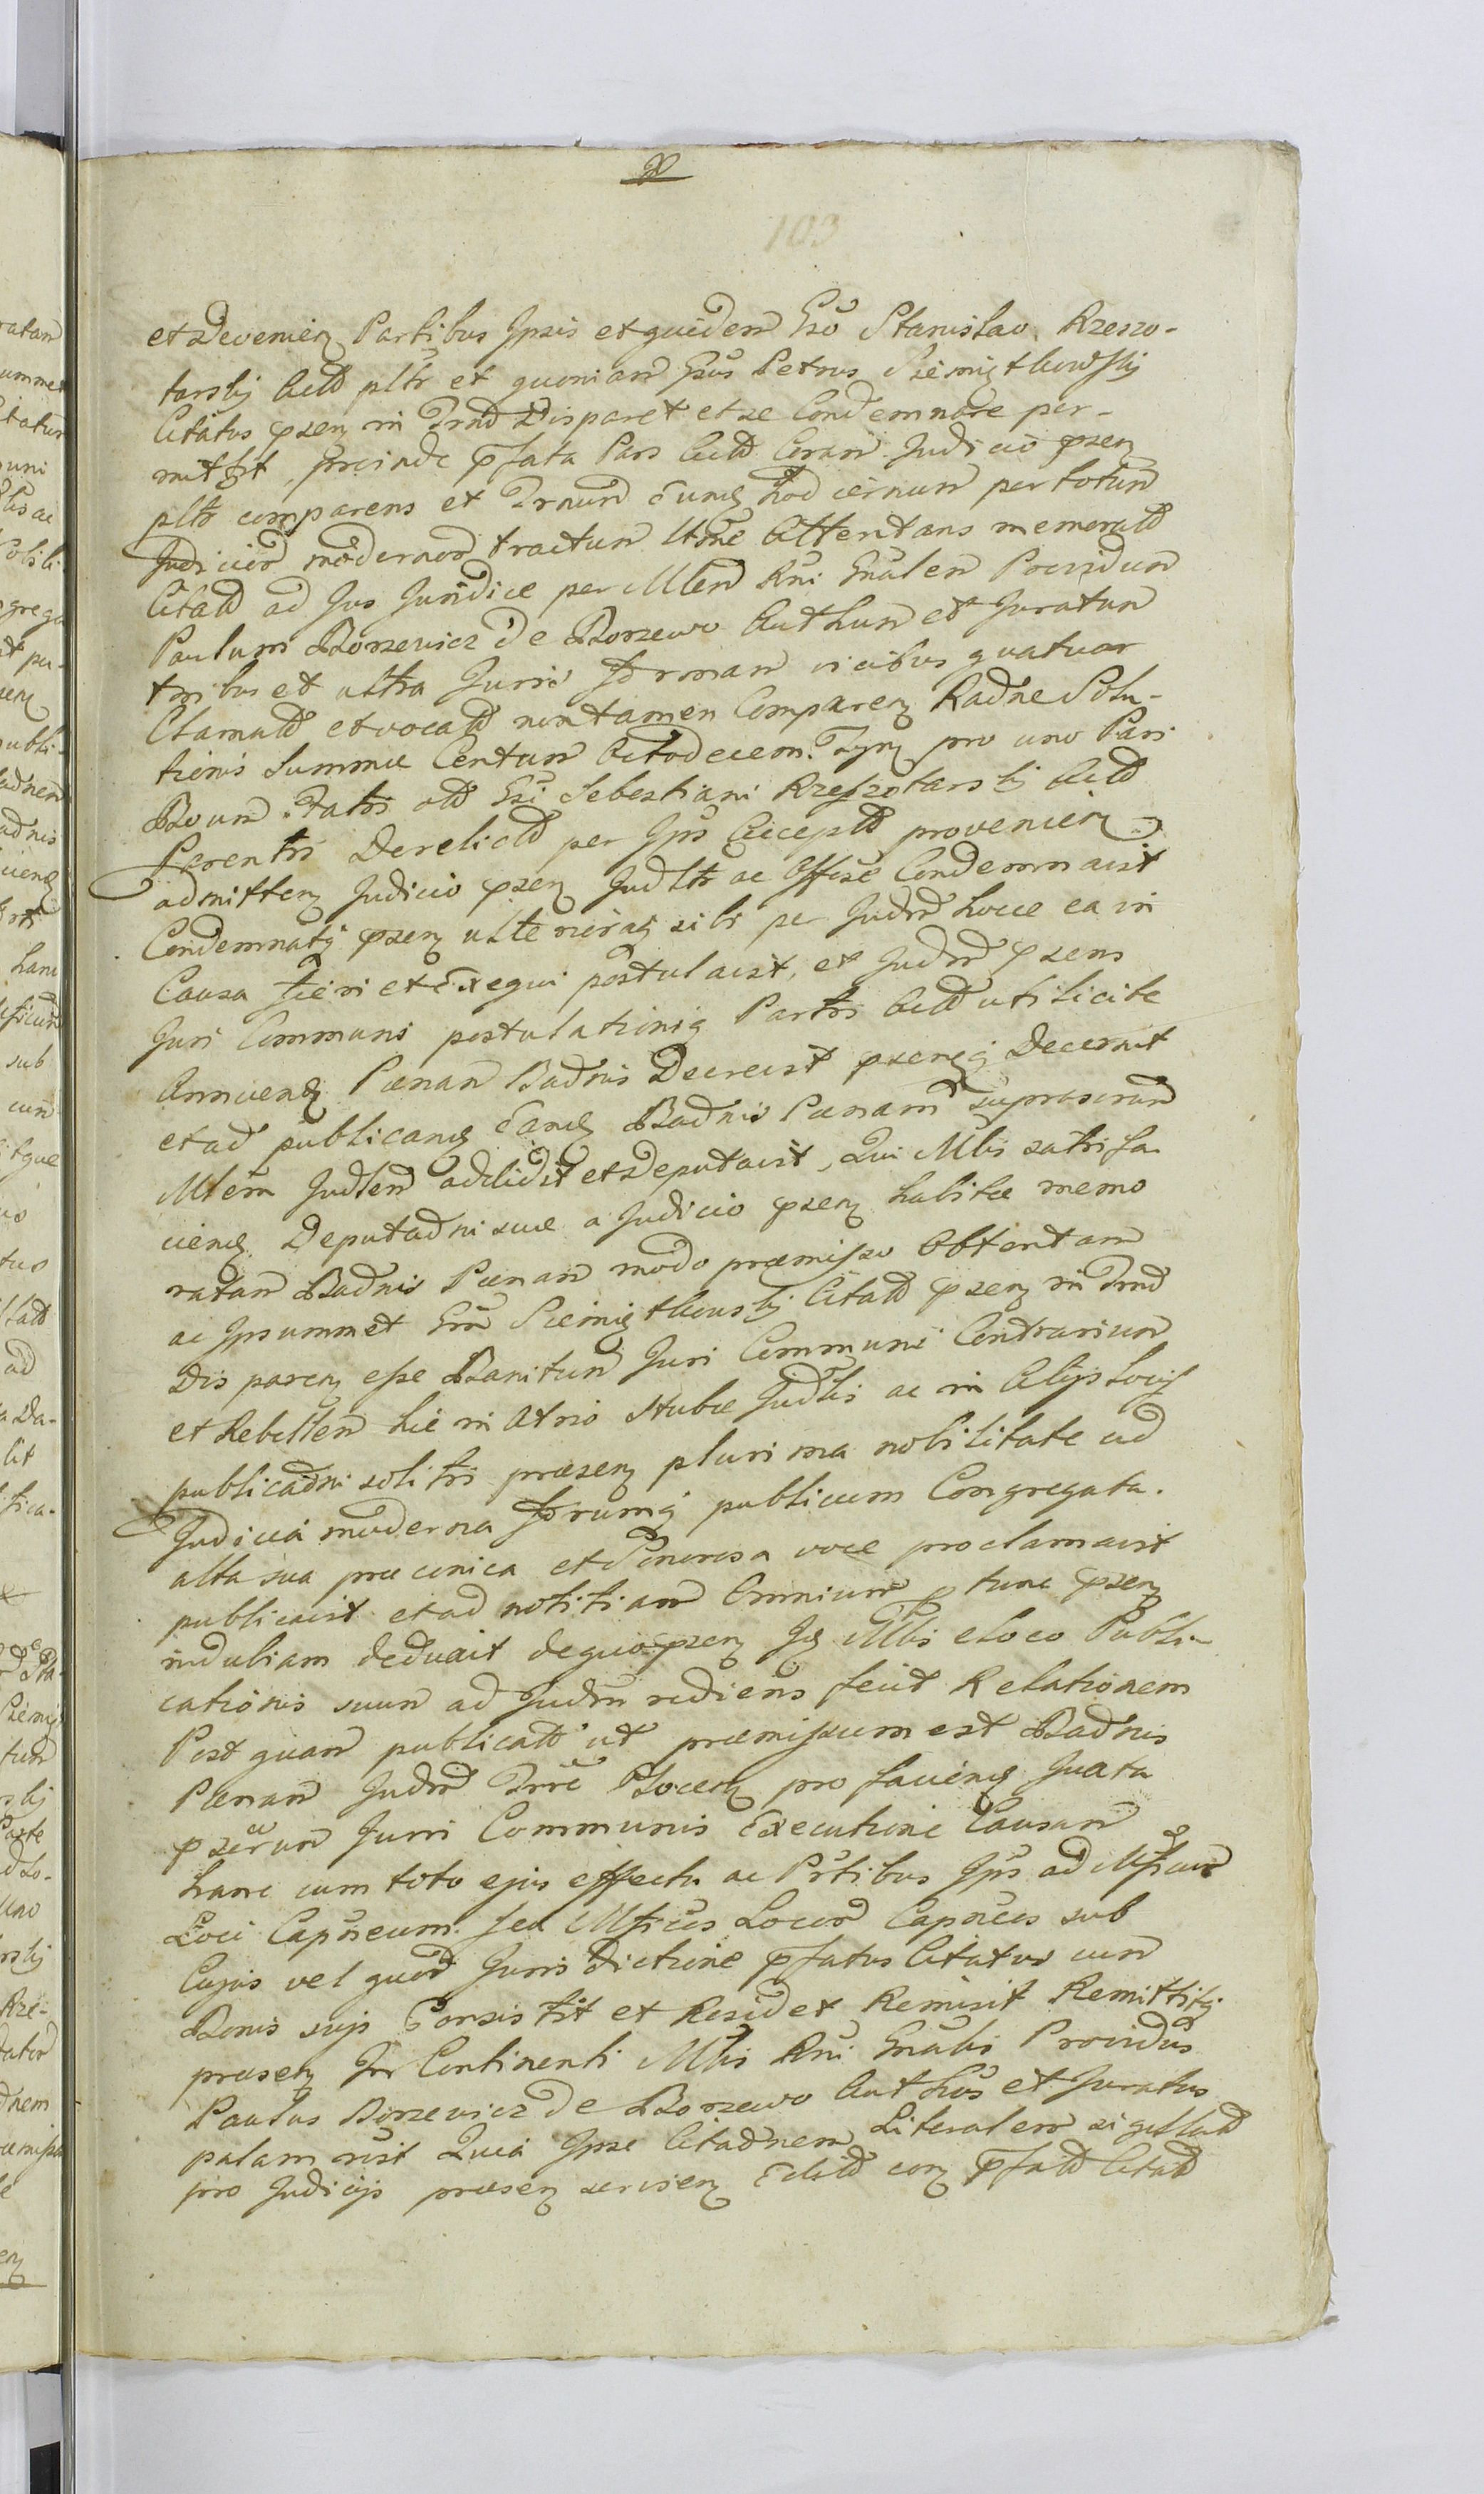 103
et Devenien Partibus Ipsis et quidem Gso Stanislao Rzeszo-
tarskij Actt pltr et quoniam Gsus Petrus Piemięthowskij
Citatus psen in Trno Disparet et se Condemnare per-
mittit, proinde pfata Pars Actt Coram Judicio psen
pltr comparens et Trnum eunq hodiernum per totum
Judicior modernor tractum Itme Attentans memoratt
Citatt ad Jus Juridice per Mlem Rni Gnalem Providum
Paulum Borzewicz De Borzewo Authum et Juratum
tribus et ultra Juris formam vicibus quatuor
Clamatt et vocatt non tamen Comparen Raone Solu-
tionis Summae Centum Octodecem Tyn pro uno Pari
Boum Fatis ott Gsi Sebestiani Rzeszotarskij Actt
Parentis Derelictt per Ipm Acceptt provenien
admitten Judicio psen Judltr ac Offose Condemnavit
Condemnatq psen ulteriorq sibi pe Judm hocce ea in
Causa fieri et Exequi postulavit, et Judm psens
Juri Communi postulationiq Partis Actt utilicite
Annuend Paenam Baonis Decrevit psenqq Decernit
et ad publicanq eanq Baonis Paenam supraseram
Mlem Judlem addidit et Deputavit, Qui Mlis satisfa
cienq Deputaoni suae a Judicio psen habitae memo
ratam Baonis Paenam modo praemisso Obtentam
ac Ipsummet Gsm Piemięthowskij Citatt psen in Trno
Disparen esse Banitum Juri Communi Contrarium
et Rebellem hic in Atrio Stubae Judlis ac in Alijs Locis
publicaoni solitis praesen plurima nobilitate ad
Judicia moderna forumq publicum Congregata.
alta sua praeconica et Sonorosa voce proclamavit
publicavit et ad notitiam Omnium p tunc psen
indubiam deduxit de quo psen Iq Mlis e loco Publi-
cationis suum ad Judm rediens fecit Relationem
Post quam publicatt ut praemissum est Baonis
Paenam Judm Trre Plocen pro facienq Juxta
pserum Juris Communis Executione Causam
hanc cum toto ejus effectu ac Ptibus Ips ad Mficum
Loci Capneum seu Mficos Locor Capneos sub
Cujus vel quor Jurisdictione pfatus Citatus cum
Bonis suis Consistit et Residet Remisit Remittitq
praesen In Continenti Mlis Rni Gnalis Providus
Paulus Borzewicz De Borzewo Authus et Juratus
palam rsit Quia Ipse Citaonem Literalem sigillatt
pro Judicijs praesen servien Editt con pfatt Citatt